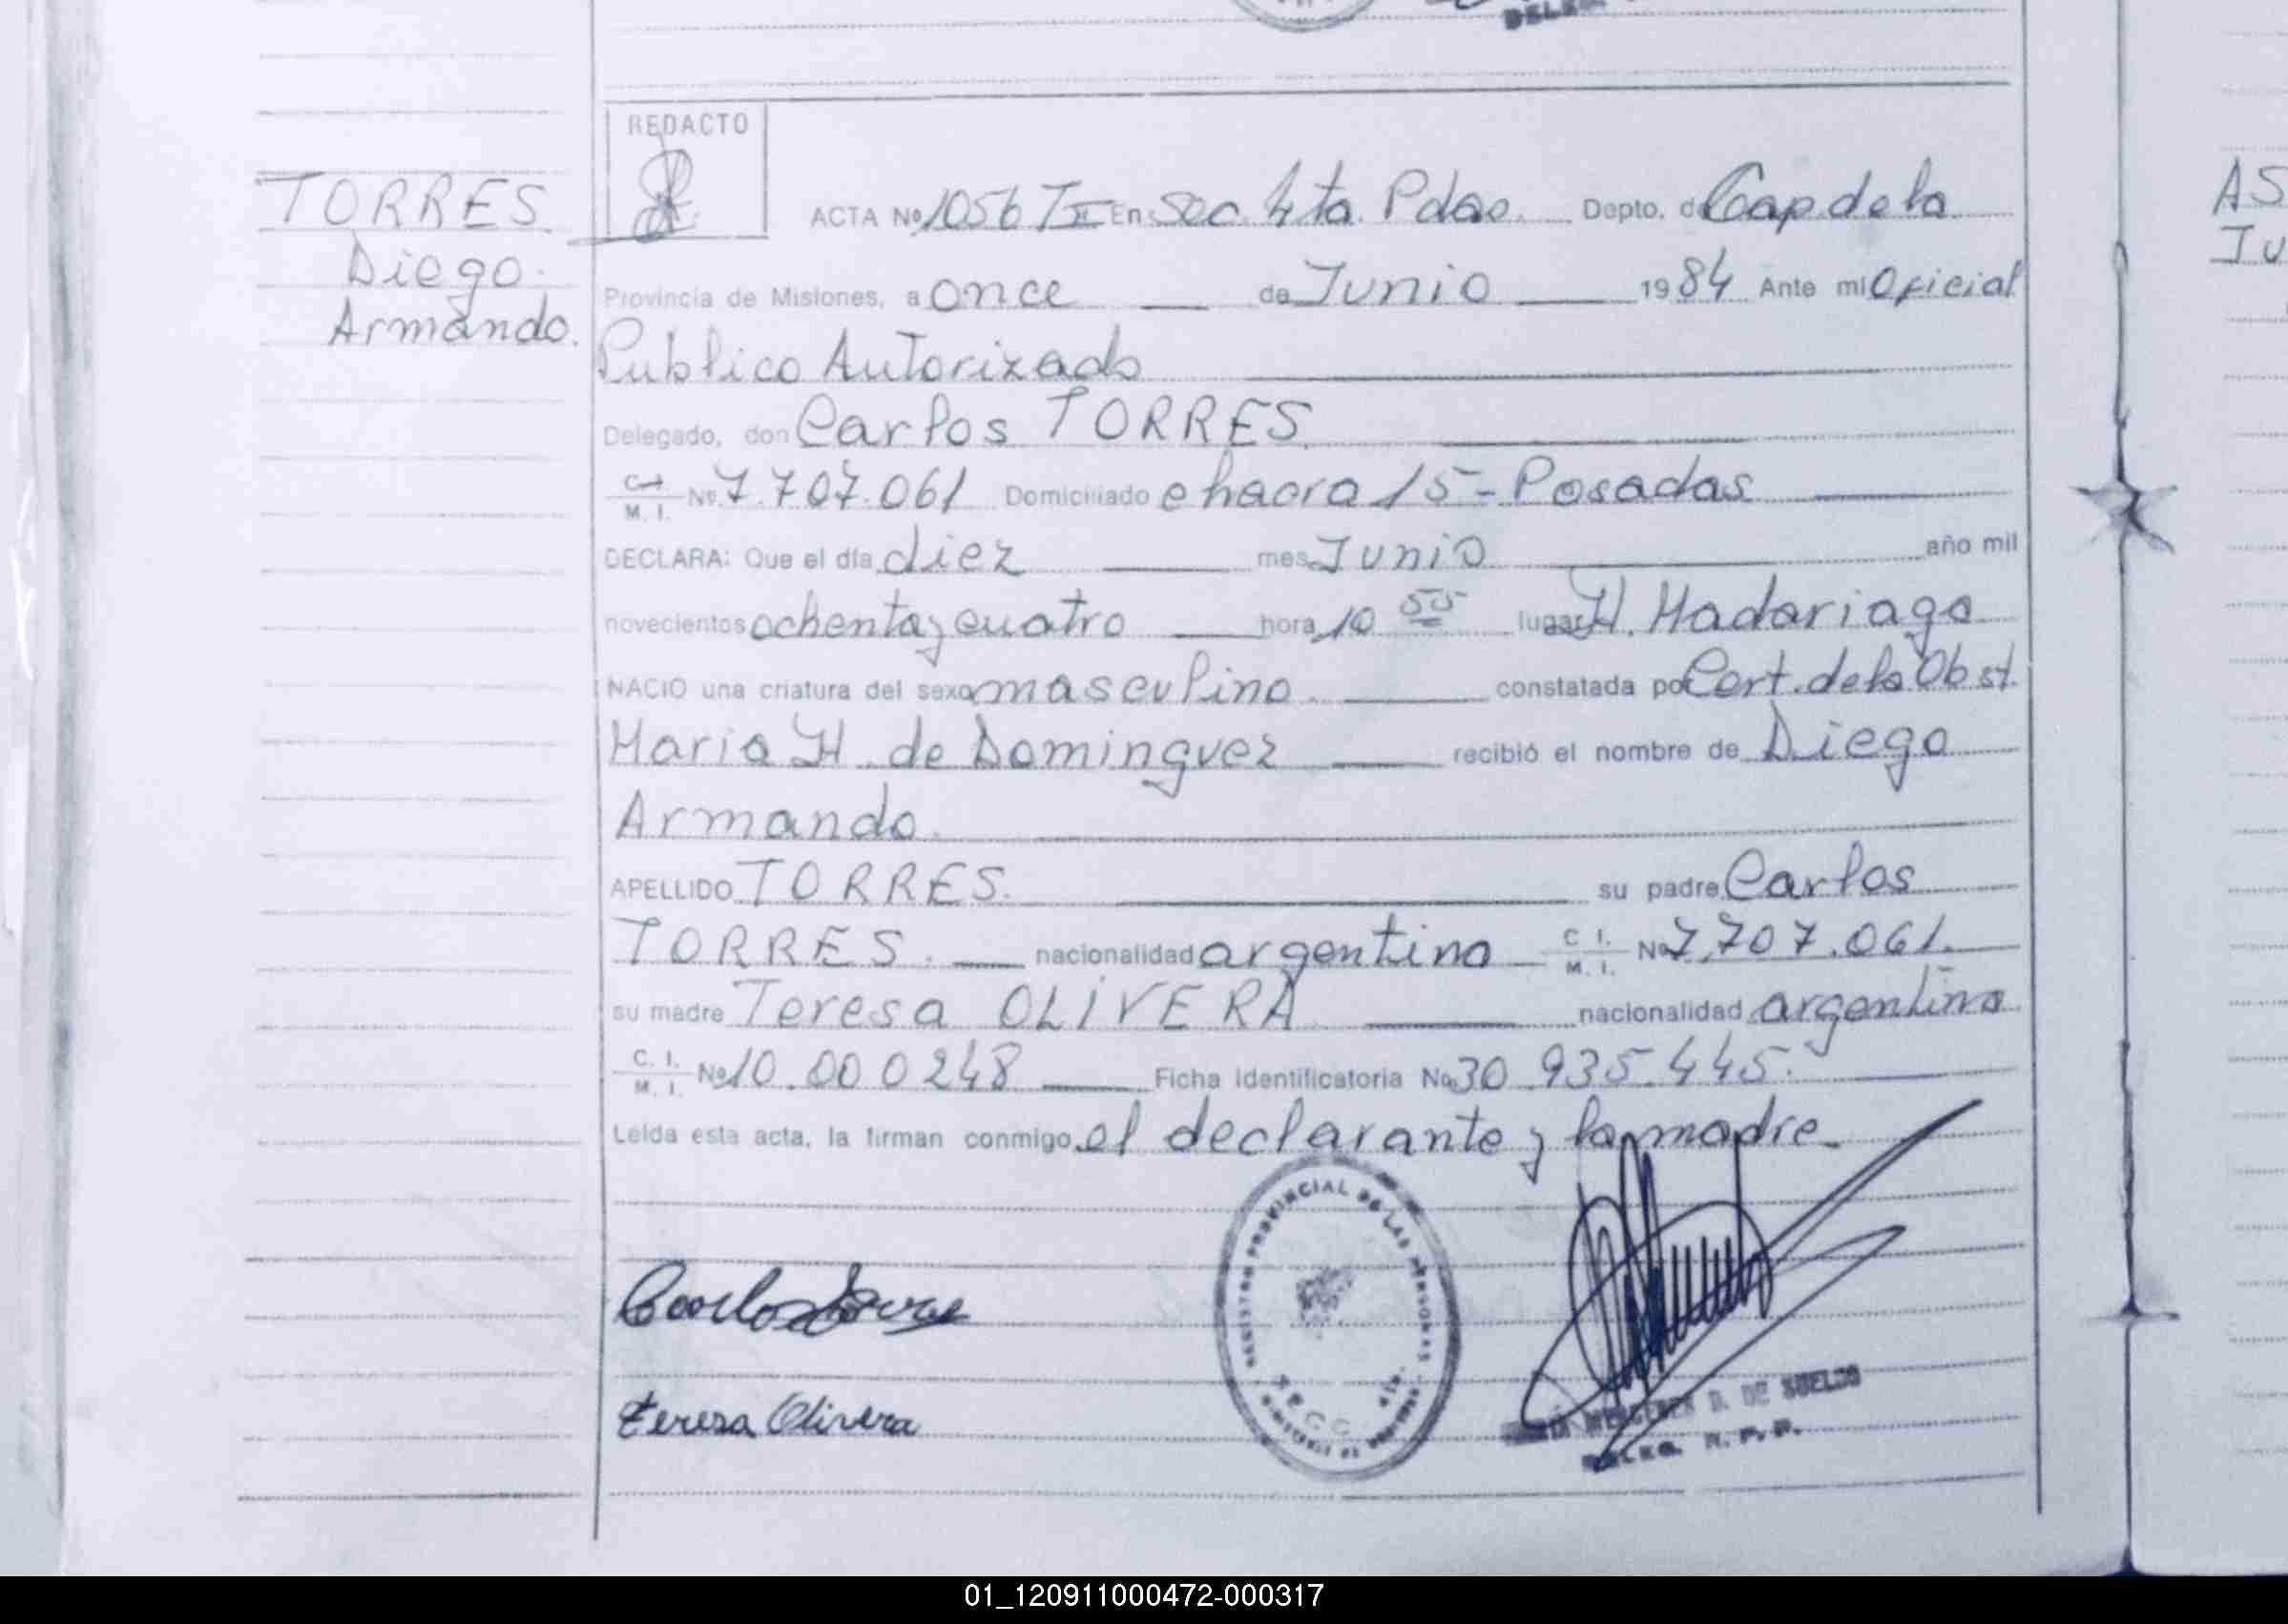 DELEG
REDACTO
TORRES
Diego
Armando.
ACTA Nº 1056 T II En Sec. 4ta. Pdas. Depto. de Cap de la
Provincia de Misiones, a once de Junio 1984 Ante mi Oficial
Publico Autorizado
Delegado, don Carlos TORRES
C. I. M. I. Nº 7.707.061 Domiciliado chacra 15 - Posadas
DECLARA: Que el día diez mes Junio año mil
novecientos ochenta y cuatro hora 10 55 lugar H. Madariaga
NACIO una criatura del sexo masculino constatada por Cert. de la Obst.
Maria H. de Dominguez recibió el nombre de Diego
Armando.
APELLIDO TORRES. su padre Carlos
TORRES. nacionalidad argentino C I. M. I. Nº 7.707.061.
su madre Teresa OLIVERA nacionalidad argentina
C. I. M. I. Nº 10.000248 Ficha identificatoria Nº 30.935.445.
Leída esta acta, la firman conmigo el declarante y la madre.
REGISTRO PROVINCIAL DE LAS PERSONAS
Carlos Torres
Teresa Olivera
D. DE SUELDO
DELEG. R. P. P.
AS
JU
01_120911000472-000317